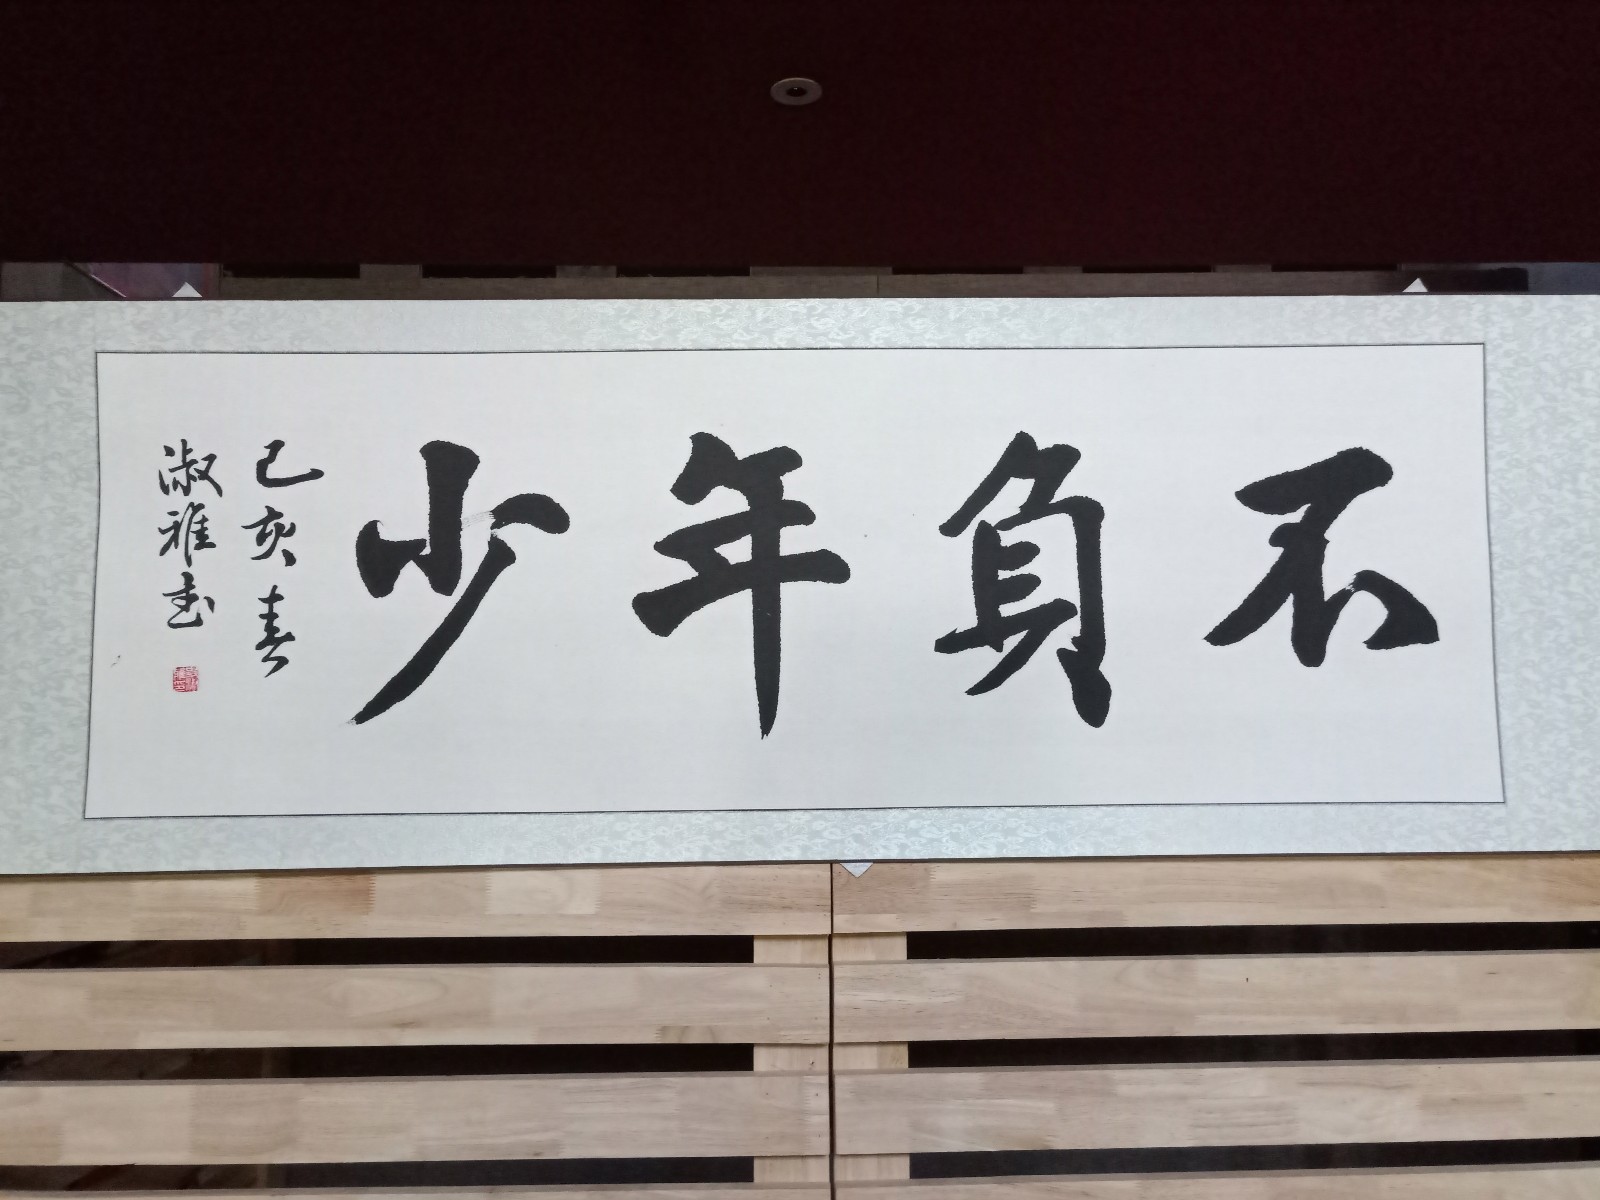 不負年少
己亥春
淑雅書